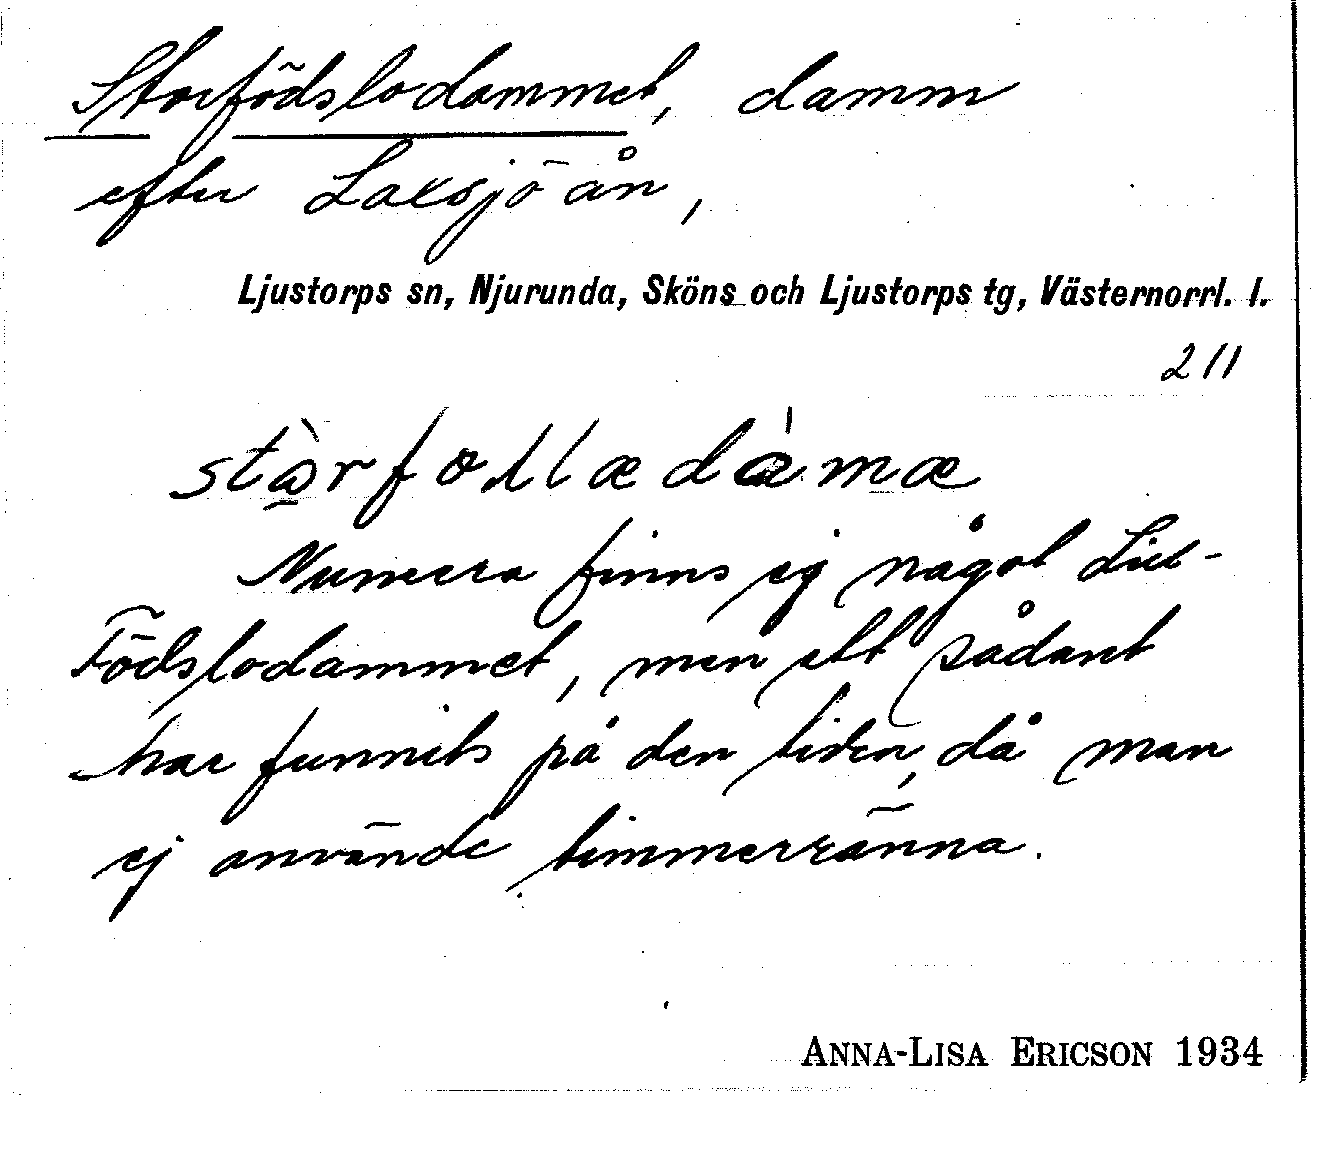 Storfödslodammet, damm
efter Laxsjöån,
Ljustorps sn, Njurunda, Sköns och Ljustorps tg, Västernorrl. l.
211
Numera finns ej något Lill-
Födslodammet, men ett sådant
har funnits på den tiden, då man
ej använde timmerränna.
ANNA-LISA ERICSON 1934